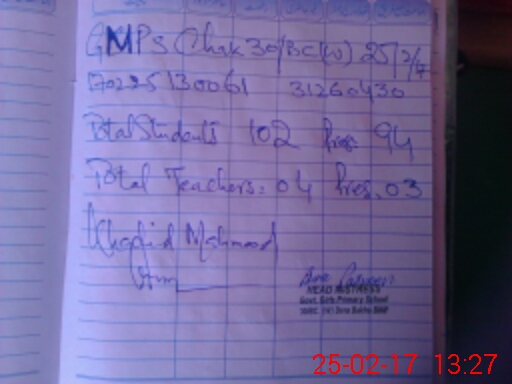 GMPS Chak 30/BC(W) 25/2/17
170225130061 31260430
Total Students 102 Pres. 94
Total Teachers: 04 Pres. 03
Khalid Mahmood
HEAD MISTRESS
Govt. Girls Primary School
25-02-17 13:27